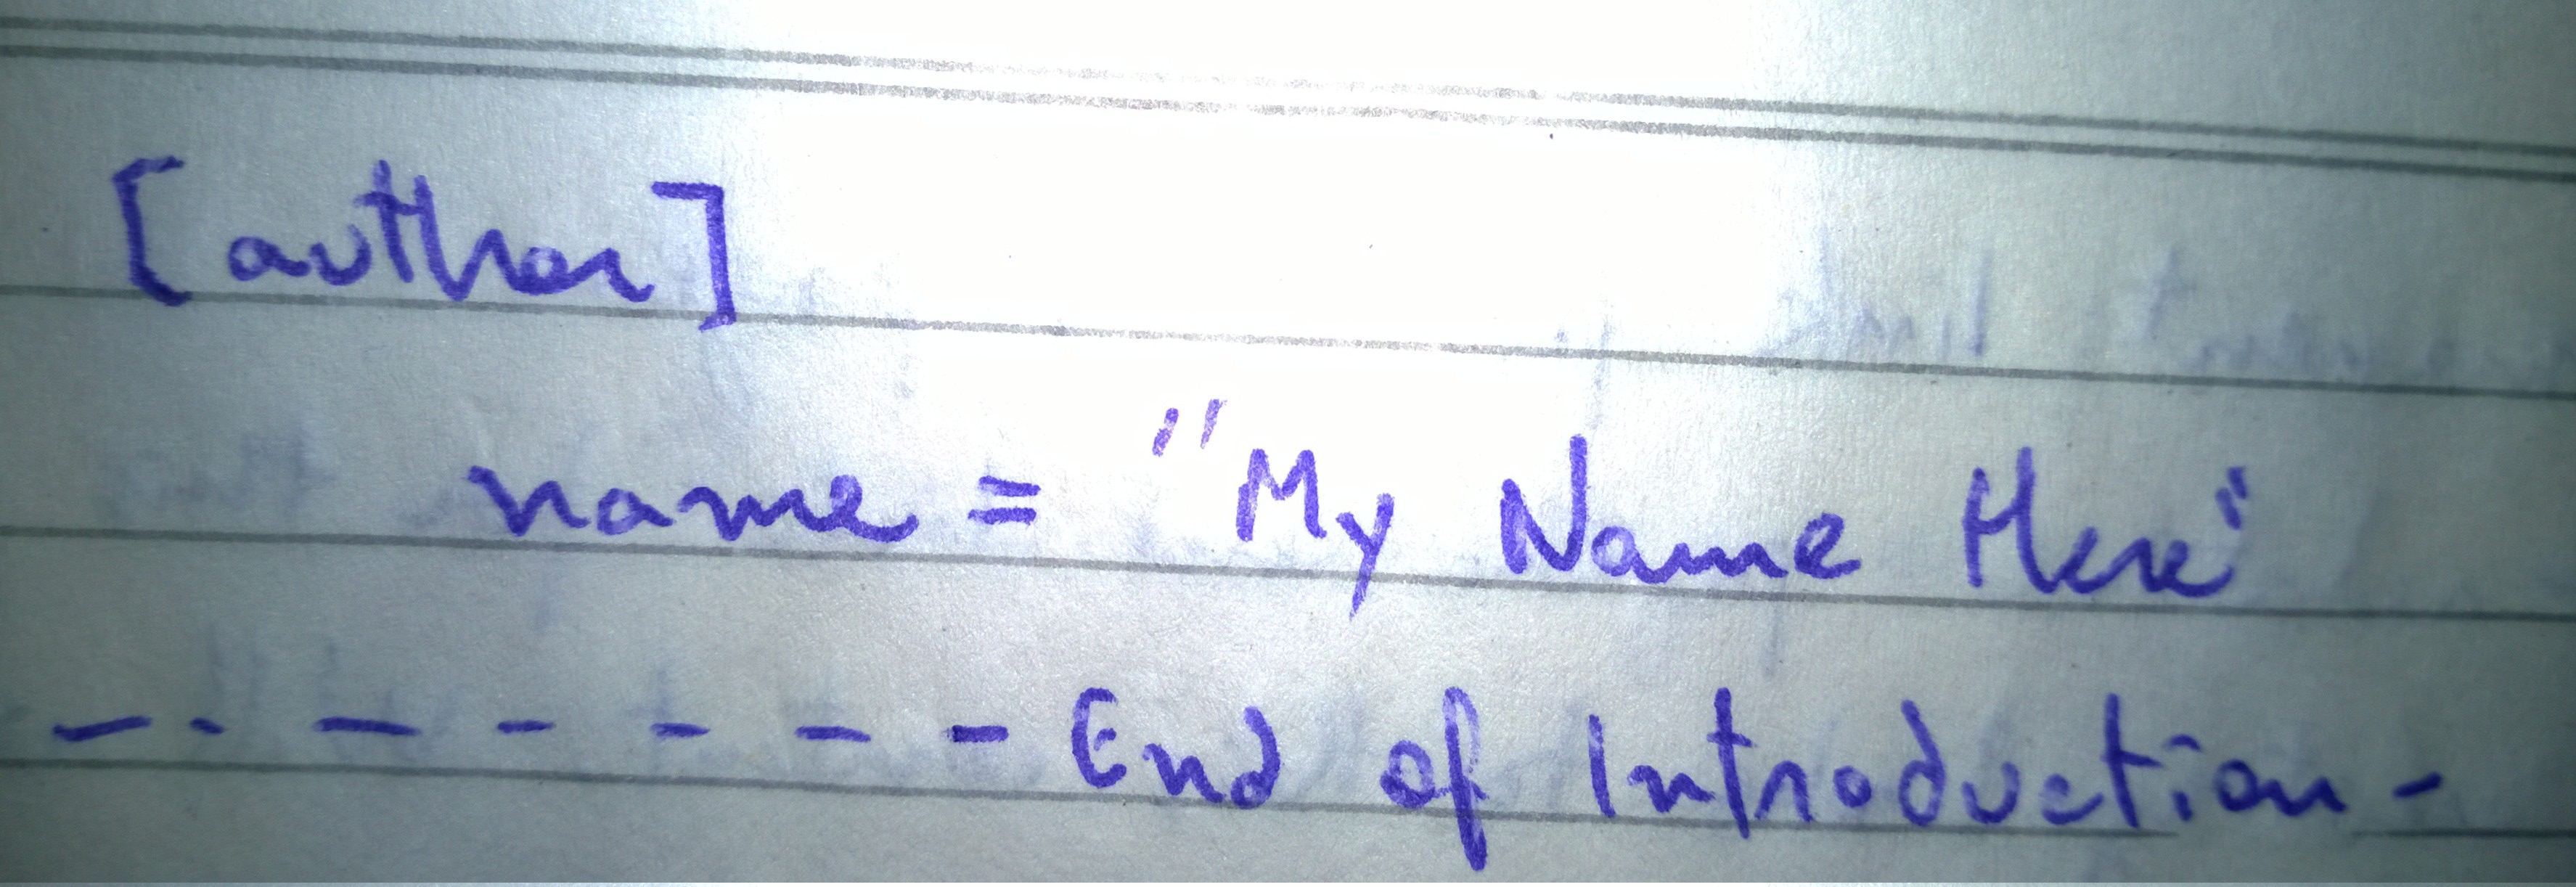 [author]
name = "My Name Here"
- - - - - - - - End of Introduction -